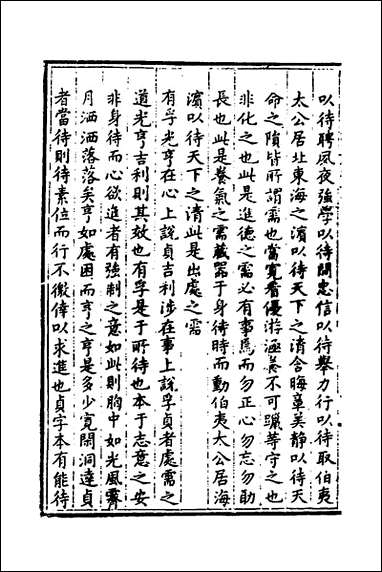 以待聘夙夜強學以待問忠信以待舉力行以待取伯夷
太公居北東海之濱以待天下之清含晦章美靜以待天
命之隤皆所謂需也當寬着優游涵養不可躐等守之也
非化之也此是進德之需必有事焉而勿正心勿忘勿助
長也此是養氣之需藏器于身待時而動伯夷太公居海
濱以待天下之清此是出處之需
有孚光亨在心上說貞吉利涉在事上說孚貞者處需之
道光亨吉利則其效也有孚是于所待也本于志意之安
非身待而心欲進者有強制之意如此則胸中如光風霽
月洒洒落落矣亨如處困而亨之亨是多少寬閑洞達貞
者當待則待素位而行不徼倖以求進也貞字本有能待